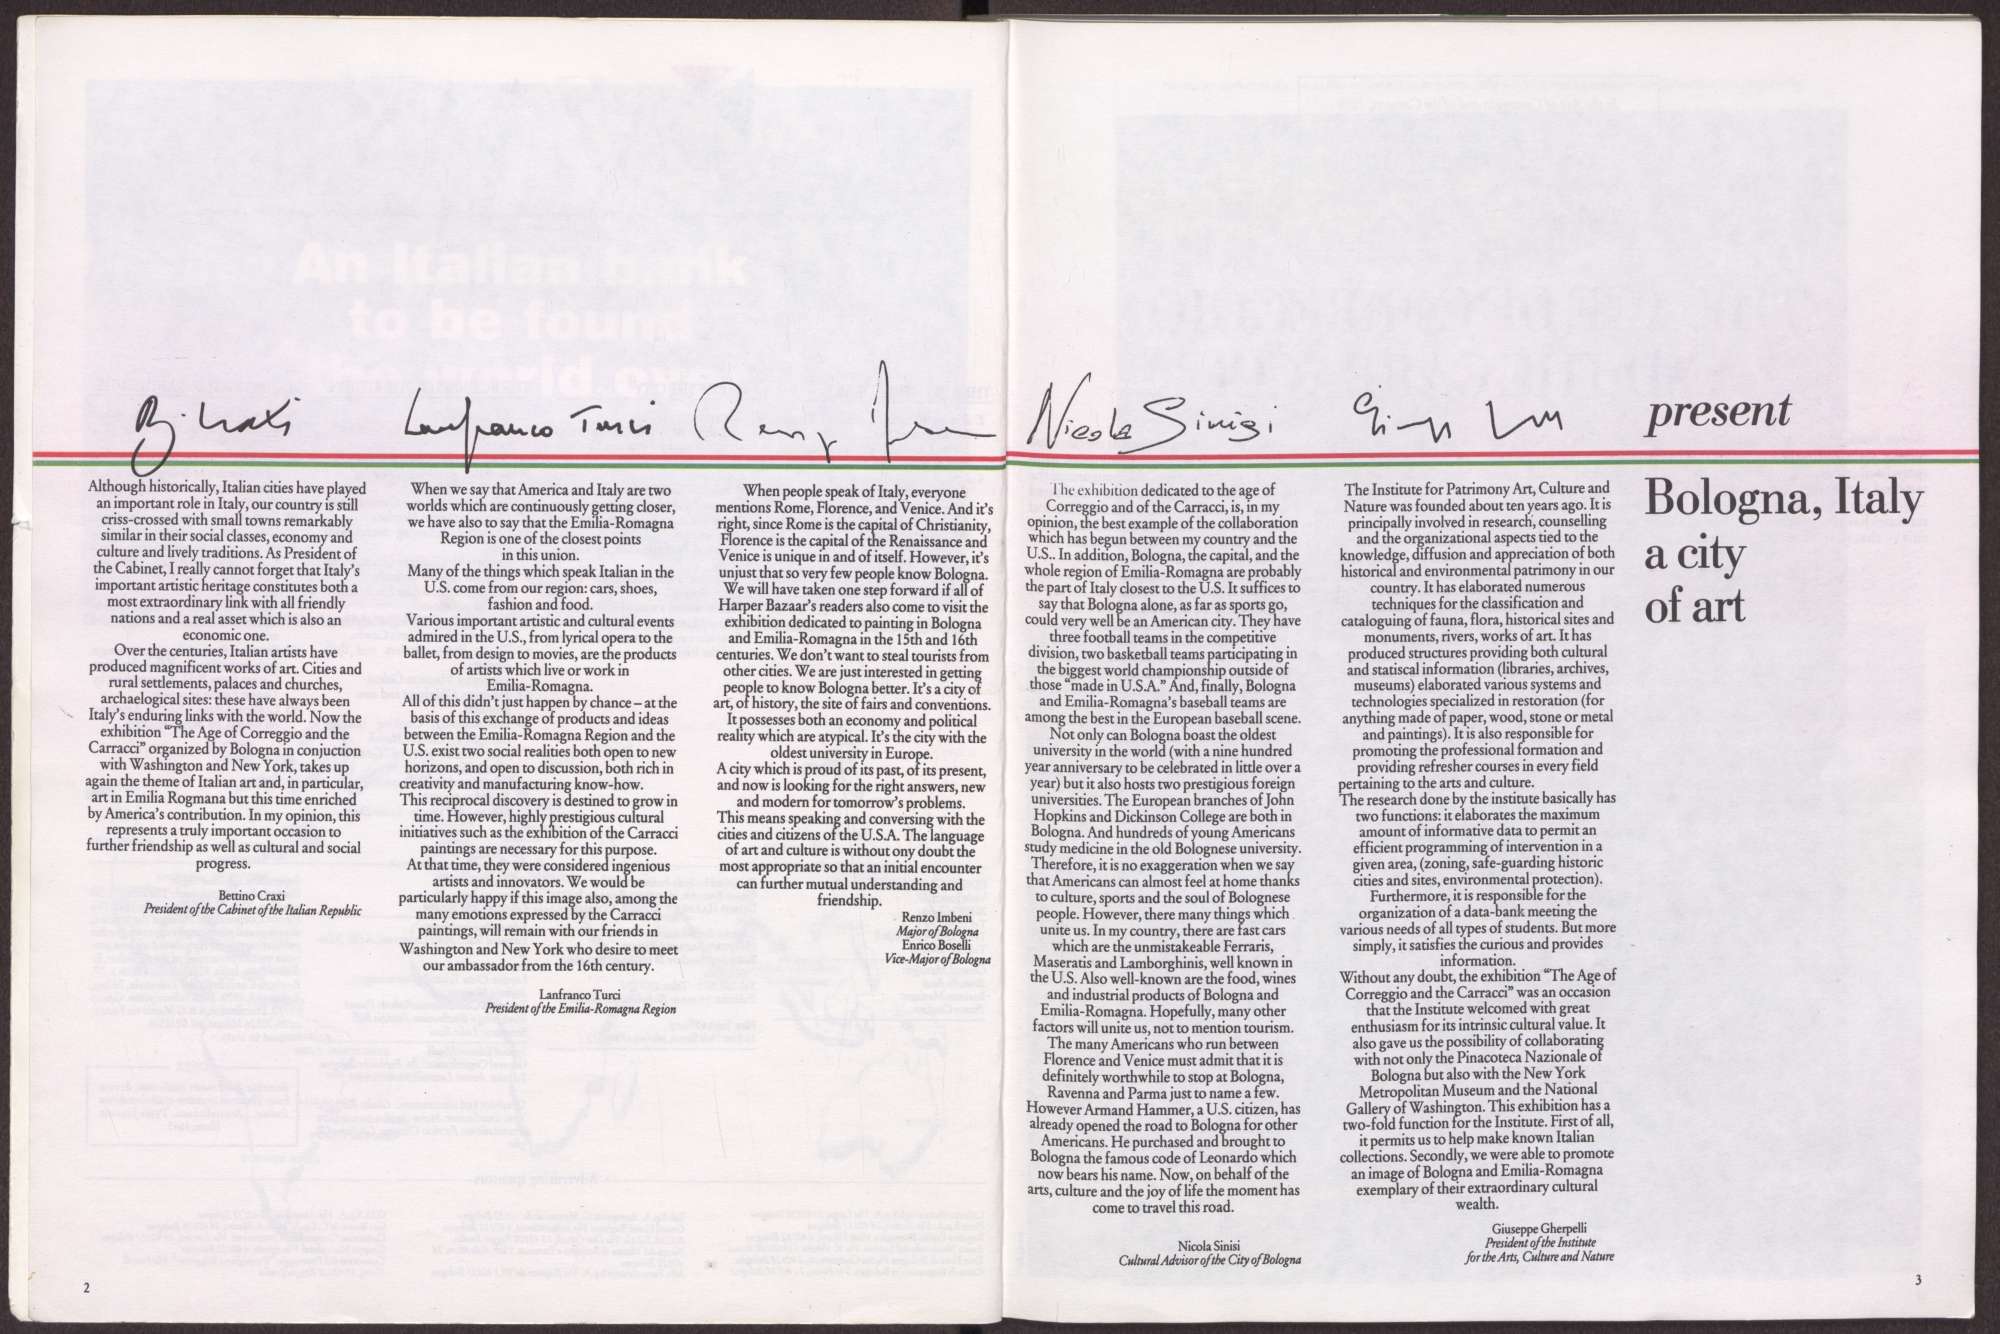 Although historically, Italian cities have played
an important role in Italy, our country is still
criss-crossed with small towns remarkably
similar in their social classes, economy and
culture and lively traditions. As President of
the Cabinet, I really cannot forget that Italy's
important artistic heritage constitutes both a
most extraordinary link with all friendly
nations and a real asset which is also an
economic one.
Over the centuries, Italian artists have
produced magnificent works of art. Cities and
rural settlements, palaces and churches,
archaelogical sites: these have always been
Italy's enduring links with the world. Now the
exhibition "The Age of Correggio and the
Carracci" organized by Bologna in conjuction
with Washington and New York, takes up
again the theme of Italian art and, in particular,
art in Emilia Rogmana but this time enriched
by America's contribution. In my opinion, this
represents a truly important occasion to
further friendship as well as cultural and social
progress.
Bettino Craxi
President of the Cabinet of the Italian Republic
Lanfranco Turci
When we say that America and Italy are two
worlds which are continuously getting closer,
we have also to say that the Emilia-Romagna
Region is one of the closest points
in this union.
Many of the things which speak Italian in the
U.S. come from our region: cars, shoes,
fashion and food.
Various important artistic and cultural events
admired in the U.S., from lyrical opera to the
ballet, from design to movies, are the products
of artists which live or work in
Emilia-Romagna.
All of this didn't just happen by chance – at the
basis of this exchange of products and ideas
between the Emilia-Romagna Region and the
U.S. exist two social realities both open to new
horizons, and open to discussion, both rich in
creativity and manufacturing know-how.
This reciprocal discovery is destined to grow in
time. However, highly prestigious cultural
initiatives such as the exhibition of the Carracci
paintings are necessary for this purpose.
At that time, they were considered ingenious
artists and innovators. We would be
particularly happy if this image also, among the
many emotions expressed by the Carracci
paintings, will remain with our friends in
Washington and New York who desire to meet
our ambassador from the 16th century.
Lanfranco Turci
President of the Emilia-Romagna Region
When people speak of Italy, everyone
mentions Rome, Florence, and Venice. And it's
right, since Rome is the capital of Christianity,
Florence is the capital of the Renaissance and
Venice is unique in and of itself. However, it's
unjust that so very few people know Bologna.
We will have taken one step forward if all of
Harper Bazaar's readers also come to visit the
exhibition dedicated to painting in Bologna
and Emilia-Romagna in the 15th and 16th
centuries. We don't want to steal tourists from
other cities. We are just interested in getting
people to know Bologna better. It's a city of
art, of history, the site of fairs and conventions.
It possesses both an economy and political
reality which are atypical. It's the city with the
oldest university in Europe.
A city which is proud of its past, of its present,
and now is looking for the right answers, new
and modern for tomorrow's problems.
This means speaking and conversing with the
cities and citizens of the U.S.A. The language
of art and culture is without ony doubt the
most appropriate so that an initial encounter
can further mutual understanding and
friendship.
Renzo Imbeni
Major of Bologna
Enrico Boselli
Vice-Major of Bologna
2
Nicola Sinisi
The exhibition dedicated to the age of
Correggio and of the Carracci, is, in my
opinion, the best example of the collaboration
which has begun between my country and the
U.S.. In addition, Bologna, the capital, and the
whole region of Emilia-Romagna are probably
the part of Italy closest to the U.S. It suffices to
say that Bologna alone, as far as sports go,
could very well be an American city. They have
three football teams in the competitive
division, two basketball teams participating in
the biggest world championship outside of
those "made in U.S.A." And, finally, Bologna
and Emilia-Romagna's baseball teams are
among the best in the European baseball scene.
Not only can Bologna boast the oldest
university in the world (with a nine hundred
year anniversary to be celebrated in little over a
year) but it also hosts two prestigious foreign
universities. The European branches of John
Hopkins and Dickinson College are both in
Bologna. And hundreds of young Americans
study medicine in the old Bolognese university.
Therefore, it is no exaggeration when we say
that Americans can almost feel at home thanks
to culture, sports and the soul of Bolognese
people. However, there many things which
unite us. In my country, there are fast cars
which are the unmistakeable Ferraris,
Maseratis and Lamborghinis, well known in
the U.S. Also well-known are the food, wines
and industrial products of Bologna and
Emilia-Romagna. Hopefully, many other
factors will unite us, not to mention tourism.
The many Americans who run between
Florence and Venice must admit that it is
definitely worthwhile to stop at Bologna,
Ravenna and Parma just to name a few.
However Armand Hammer, a U.S. citizen, has
already opened the road to Bologna for other
Americans. He purchased and brought to
Bologna the famous code of Leonardo which
now bears his name. Now, on behalf of the
arts, culture and the joy of life the moment has
come to travel this road.
Nicola Sinisi
Cultural Advisor of the City of Bologna
The Institute for Patrimony Art, Culture and
Nature was founded about ten years ago. It is
principally involved in research, counselling
and the organizational aspects tied to the
knowledge, diffusion and appreciation of both
historical and environmental patrimony in our
country. It has elaborated numerous
techniques for the classification and
cataloguing of fauna, flora, historical sites and
monuments, rivers, works of art. It has
produced structures providing both cultural
and statiscal information (libraries, archives,
museums) elaborated various systems and
technologies specialized in restoration (for
anything made of paper, wood, stone or metal
and paintings). It is also responsible for
promoting the professional formation and
providing refresher courses in every field
pertaining to the arts and culture.
The research done by the institute basically has
two functions: it elaborates the maximum
amount of informative data to permit an
efficient programming of intervention in a
given area, (zoning, safe-guarding historic
cities and sites, environmental protection).
Furthermore, it is responsible for the
organization of a data-bank meeting the
various needs of all types of students. But more
simply, it satisfies the curious and provides
information.
Without any doubt, the exhibition "The Age of
Correggio and the Carracci" was an occasion
that the Institute welcomed with great
enthusiasm for its intrinsic cultural value. It
also gave us the possibility of collaborating
with not only the Pinacoteca Nazionale of
Bologna but also with the New York
Metropolitan Museum and the National
Gallery of Washington. This exhibition has a
two-fold function for the Institute. First of all,
it permits us to help make known Italian
collections. Secondly, we were able to promote
an image of Bologna and Emilia-Romagna
exemplary of their extraordinary cultural
wealth.
Giuseppe Gherpelli
President of the Institute
for the Arts, Culture and Nature
present
Bologna, Italy
a city
of art
3